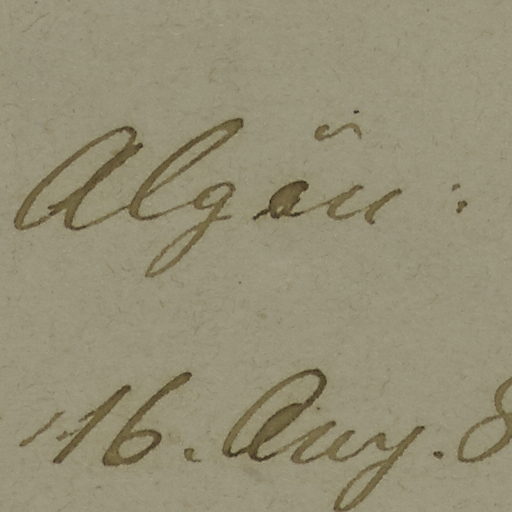 Algäu:
16. Aug. 8